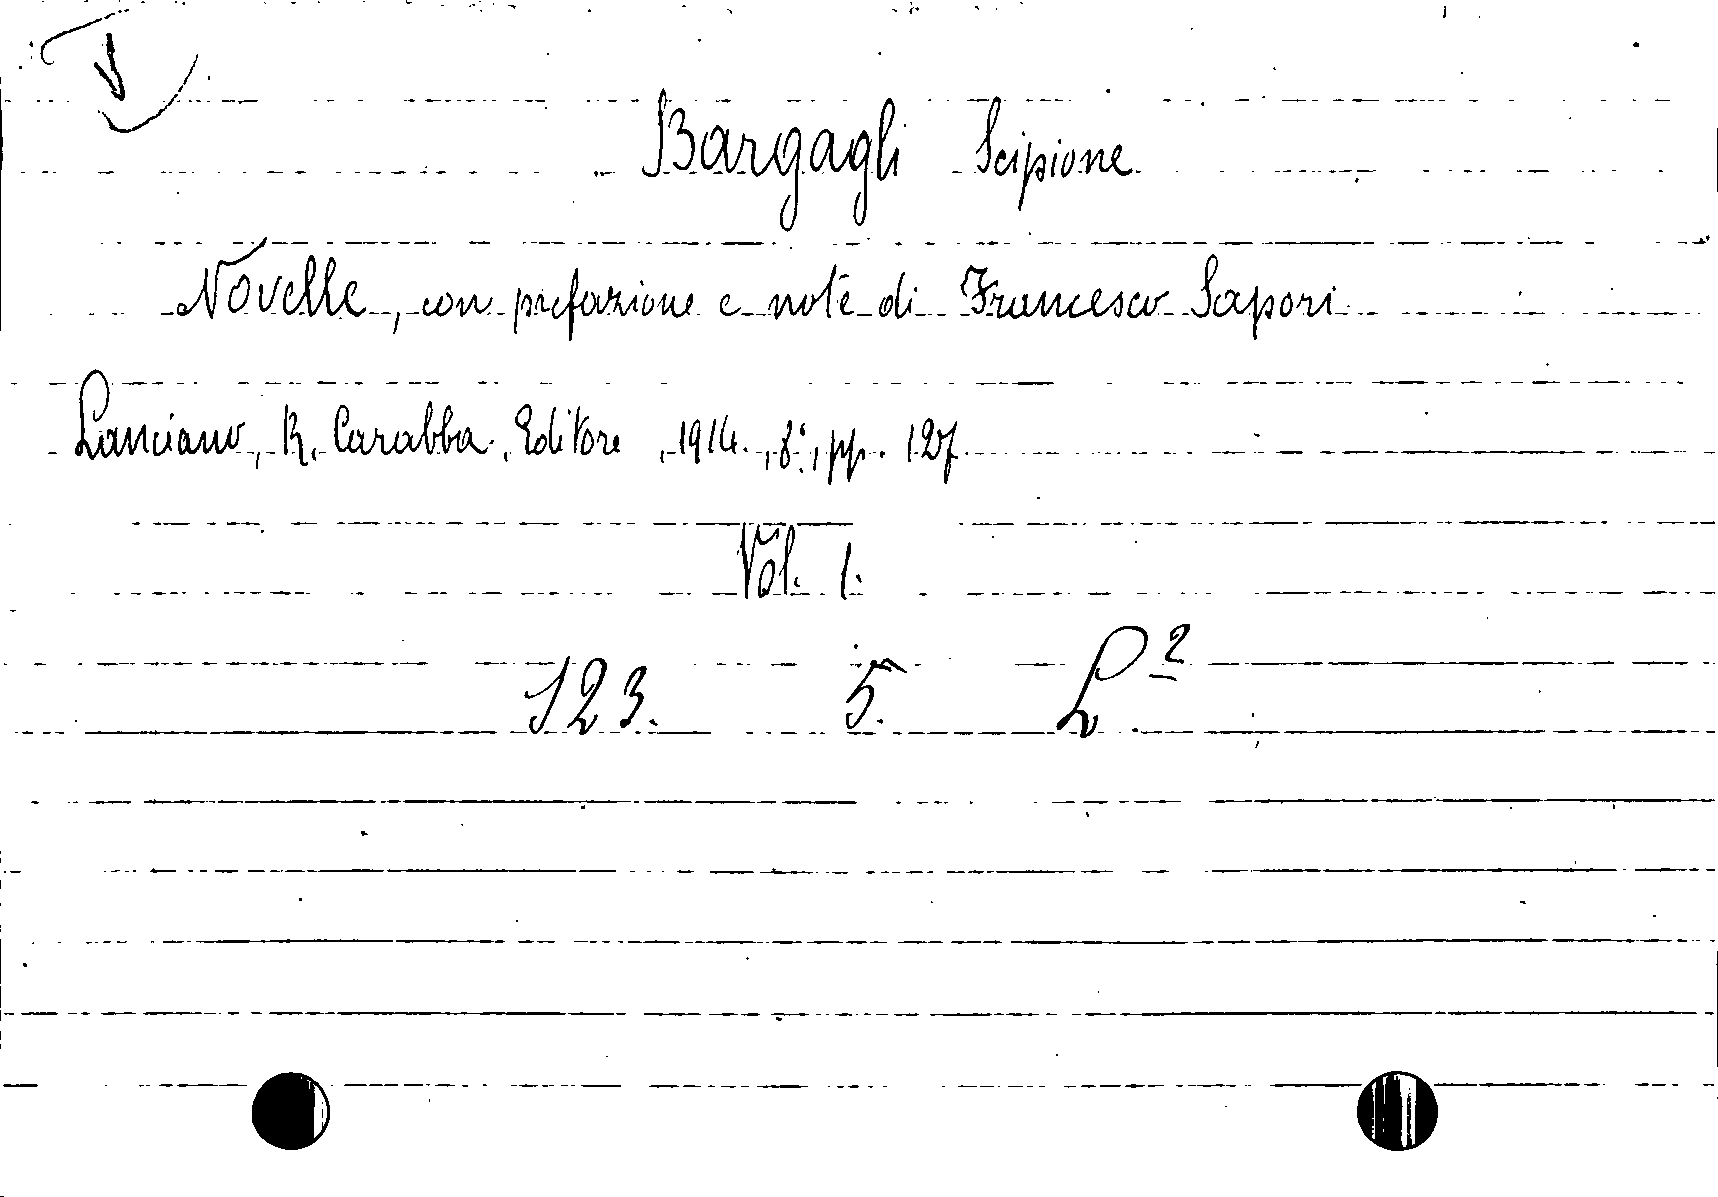 Bargagli Scipione
Novelle, con prefazione e note di Francesco Sapori
Lanciano, R. Carabba. Editore, 1914., 8°., pp. 127.
Vol. 1.
123. 5. L²